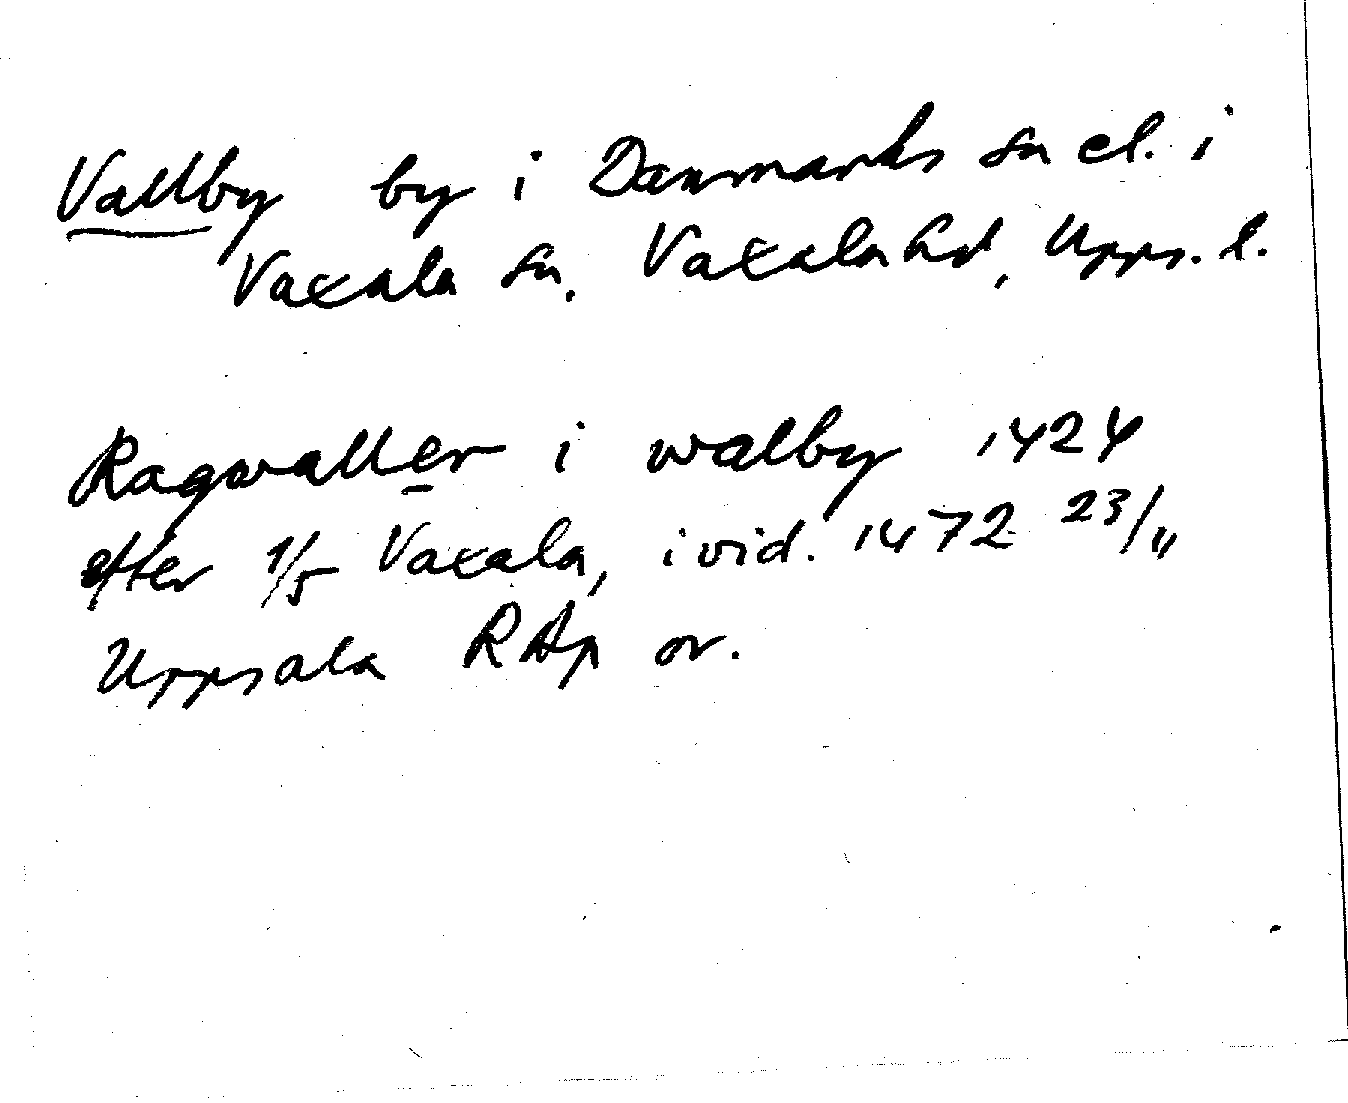 Vallby by i Danmarks sn el. i
Vaxala sn, Vaxala hd, Upps. l.
Ragwaller i walby 1424
efter 1/5 Vaxala, i vid. 1472 23/11
Uppsala RAp or.